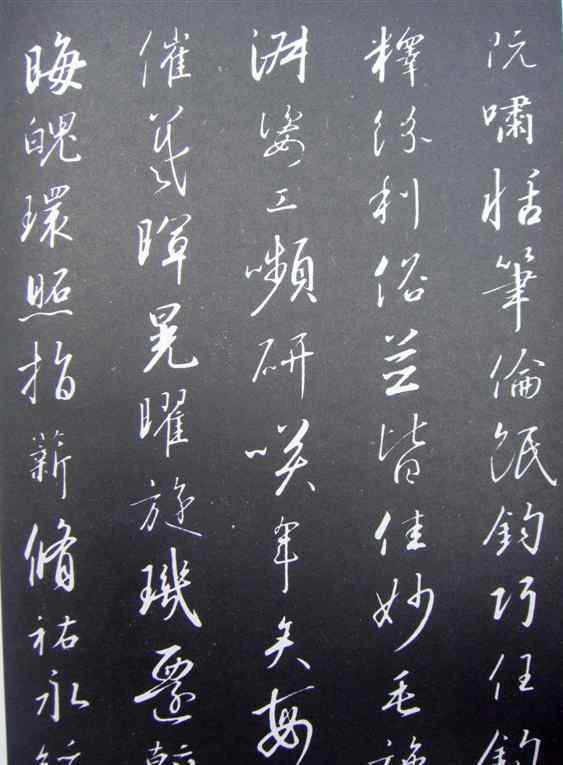 阮嘯恬筆倫紙鈞巧任釣
釋紛利俗並皆佳妙毛施
淑姿工嚬研咲年矢每
催羲暉晃曜旋璣斡
晦魄環照指薪脩祐永綏